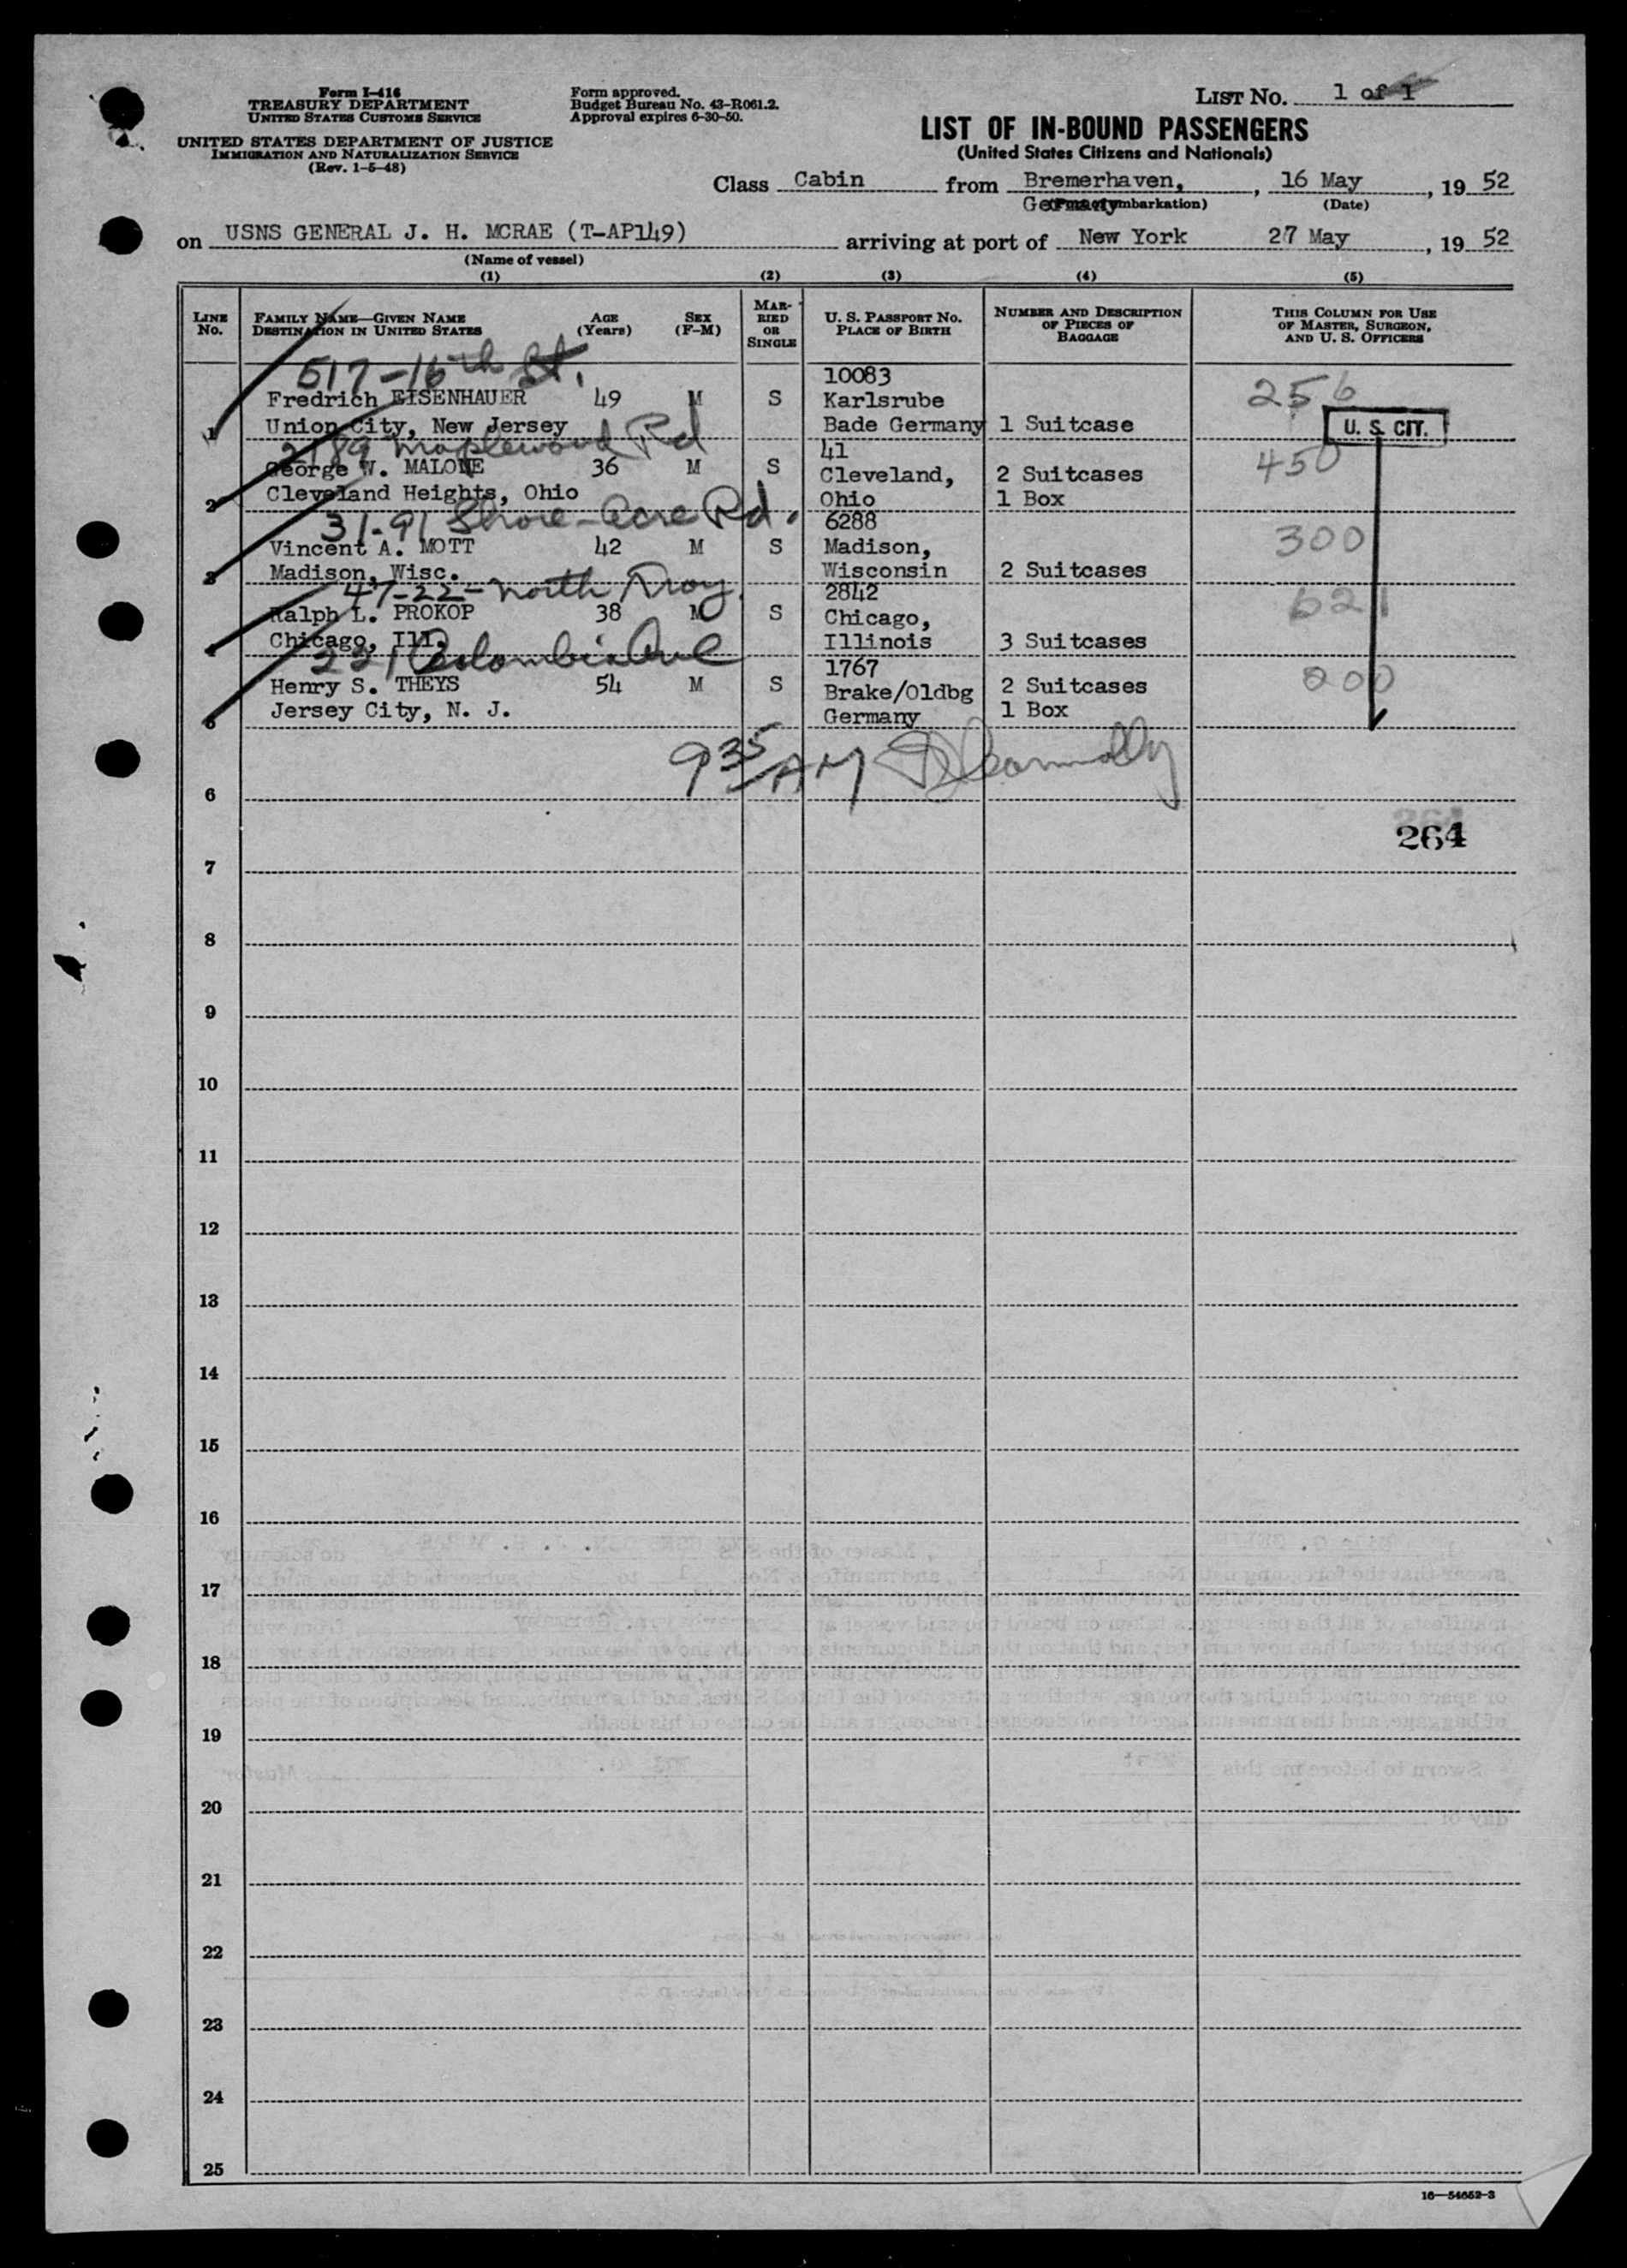 Form I-416
TREASURY DEPARTMENT
UNITED STATES CUSTOMS SERVICE
UNITED STATES DEPARTMENT OF JUSTICE
IMMIGRATION AND NATURALIZATION SERVICE
(Rev. 1-5-48)
Form approved.
Budget Bureau No. 43-R061.2.
Approval expires 6-30-50.
LIST No. 1 of 1
LIST OF IN-BOUND PASSENGERS
(United States Citizens and Nationals)
Class Cabin from Bremerhaven, Germany, 16 May, 19 52
(Date)
on USNS GENERAL J. H. MCRAE (T-AP149) arriving at port of New York 27 May, 19 52
(Name of vessel)
(1) (2) (3) (4) (5)
LINE No. FAMILY NAME—GIVEN NAME DESTINATION IN UNITED STATES AGE (Years) SEX (F-M) MARRIED OR SINGLE U. S. PASSPORT No. PLACE OF BIRTH NUMBER AND DESCRIPTION OF PIECES OF BAGGAGE THIS COLUMN FOR USE OF MASTER, SURGEON, AND U. S. OFFICERS
517-16th St. 10083
Fredrich EISENHAUER 49 M S Karlsrube 256
1 Union City, New Jersey Bade Germany 1 Suitcase U. S. CIT.
2189 Maplewood Rd 41
George W. MALONE 36 M S Cleveland, 2 Suitcases 450
2 Cleveland Heights, Ohio Ohio 1 Box
31-91 Shore-Acre Rd. 6288
Vincent A. MOTT 42 M S Madison, 300
3 Madison, Wisc. Wisconsin 2 Suitcases
47-22- North Troy. 2842
Ralph L. PROKOP 38 M S Chicago, 621
4 Chicago, Ill. Illinois 3 Suitcases
221 Colombia Ave 1767
Henry S. THEYS 54 M S Brake/Oldbg 2 Suitcases 200
5 Jersey City, N. J. Germany 1 Box
9 35/AM
6
264
7
8
9
10
11
12
13
14
15
16
17
18
19
20
21
22
23
24
25
16—54652-3